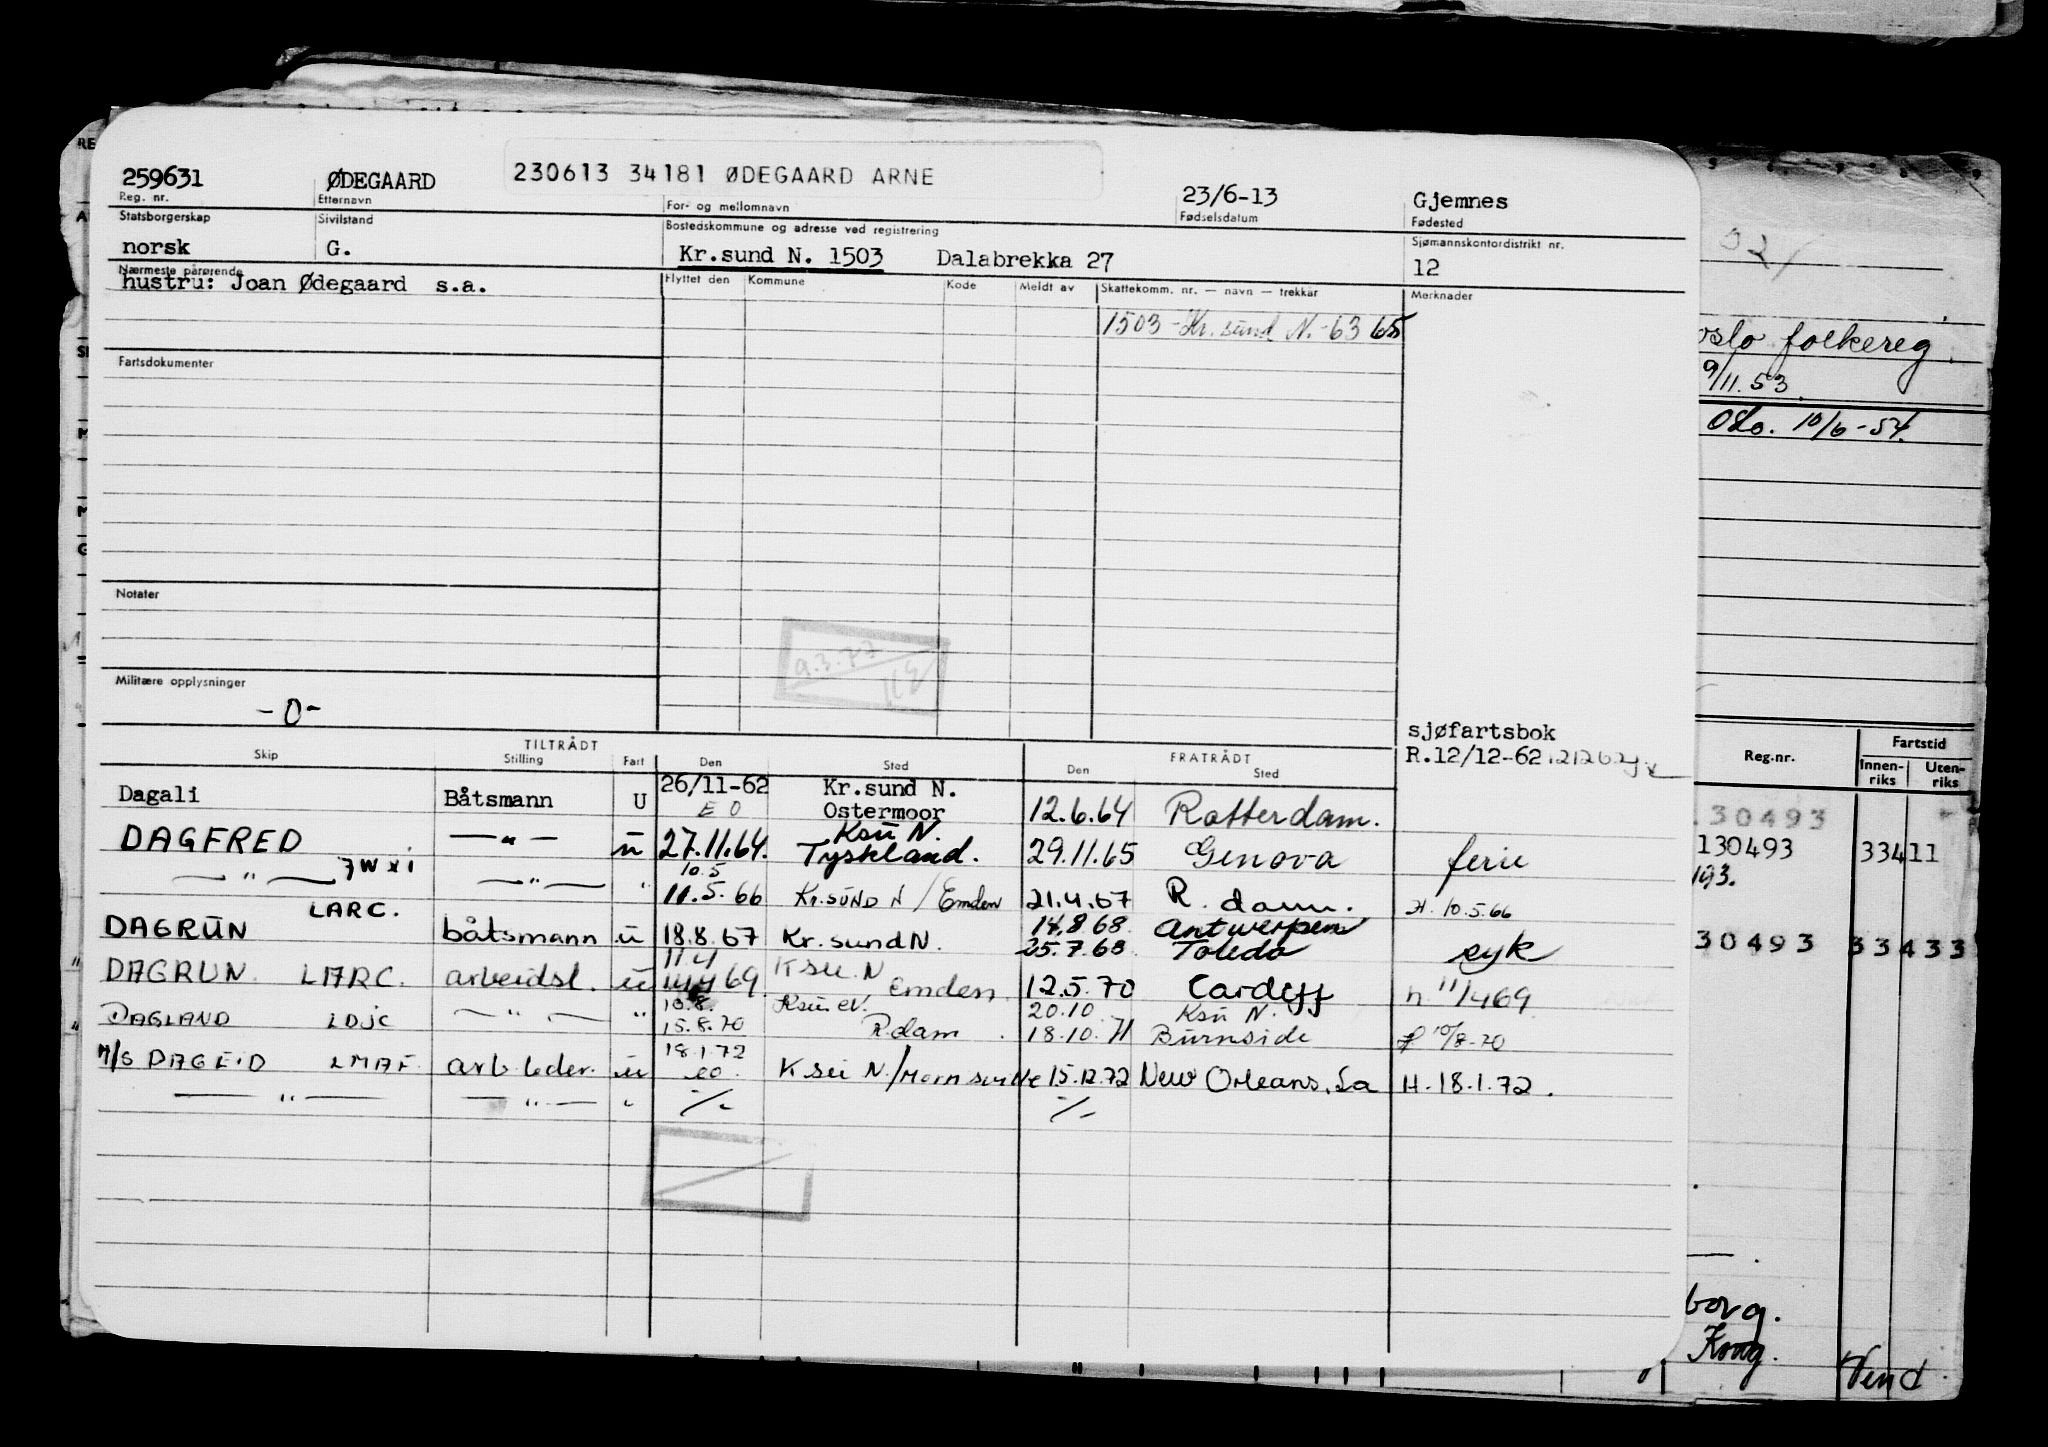 259631 ØDEGAARD 230613 34181 ØDEGAARD ARNE 23/6-13 Gjemnes
Reg. nr. Etternavn For- og mellomnavn Fødselsdatum Fødested
Statsborgerskap Sivilstand Bostedskommune og adresse ved registrering Sjømannskontordistrikt nr.
norsk G. Kr.sund N. 1503 Dalabrekka 27 12
Nærmeste pårørende Flyttet den Kommune Kode Meldt av Skattekomm. nr. — navn — trekkår Merknader
hustru: Joan Ødegaard s.a.
1503 - Kr. sund N. - 63 65
Fartsdokumenter
Notater
9.3.77
Militære opplysninger
-0-
sjøfartsbok
R.12/12-62
TILTRÅDT FRATRÅDT
Skip Stilling Fart Den Sted Den Sted
Dagali Båtsmann U 26/11-62 Kr.sund N.
E O Ostermoor 12.6.64 Rotterdam.
DAGFRED — " — u 27.11.64. Ksu N. Tyskland. 29.11.65 Genova ferie
— " — JWXI — " — " 10.5 11.5.66 Kr.SUND N / Emden 21.4.67 R. dam. H. 10.5.66
DAGRUN LARC. båtsmann u 18.8.67 Kr.sund N. 14.8.68 Antwerpen
25.7.68 Toledo syk
DAGRUN. LARC. arbeidsl. u 11.4 69 Ksu. N Emden. 12.5.70 Cardiff h 11/4 69
DAGLAND LDJC — " — " 10.8. 15.8.70 Ksu N. R.dam 20.10 Ksu N.
18.10.71 Burnside 10/8-70
M/S DAGEID LMAF arb leder. u 18.1.72 eo. Ksu N/ 15.12.72 New Orleans, La H. 18.1.72.
— " — — " — " -/- -/-
oslo folkereg.
9/11.53.
Oslo. 10/6-54.
Reg.nr. Fartstid
Innen-riks Uten-riks
130493
130493 33411
193.
30493 33433
borg.
Kong.
Vend